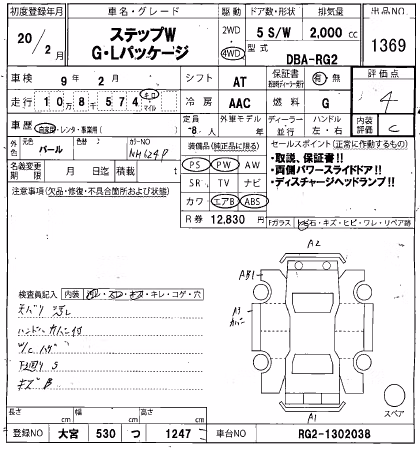 初度登録年月 車名・グレード 駆動 ドア数・形状 排気量 出品NO
20/2月 ステップW G・Lパッケージ 2WD 4WD 5 S/W 2,000 cc 1369
型式 DBA-RG2
車検 9年 2月 シフト AT 保証書 有・無 評価点
走行 108574 キロ マイル 冷房 AAC 燃料 G 4
車歴 自家用・レンタ・事業用( ) 定員 -8人 外車モデル 年 ディーラー 並行 ハンドル 左・右 内装評価 C
外色 元色 パール 色替 カラーNO NH624P 装備品(純正品に限る) セールスポイント(正常に作動するもの)
名義変更期限 月 日迄 積載 t PS PW AW ・取説、保証書!!
注意事項(欠品・修復・不具合箇所および状態) SR TV ナビ ・両側パワースライドドア!!
カワ エアB ABS ・ディスチャージヘッドランプ!!
R券 12,830 円 Fガラス トビ石・キズ・ヒビ・ワレ・リペア跡
A2
検査員記入 内装 汚レ・スレ・キズ・キレ・コゲ・穴 AB1
天バリ 汚レ A3
ハンドル
W/C ハゲ
下回り S
キズ B
スペア
A1
長さ cm 幅 cm 高さ cm
登録NO 大宮 530 つ 1247 車台NO RG2-1302038